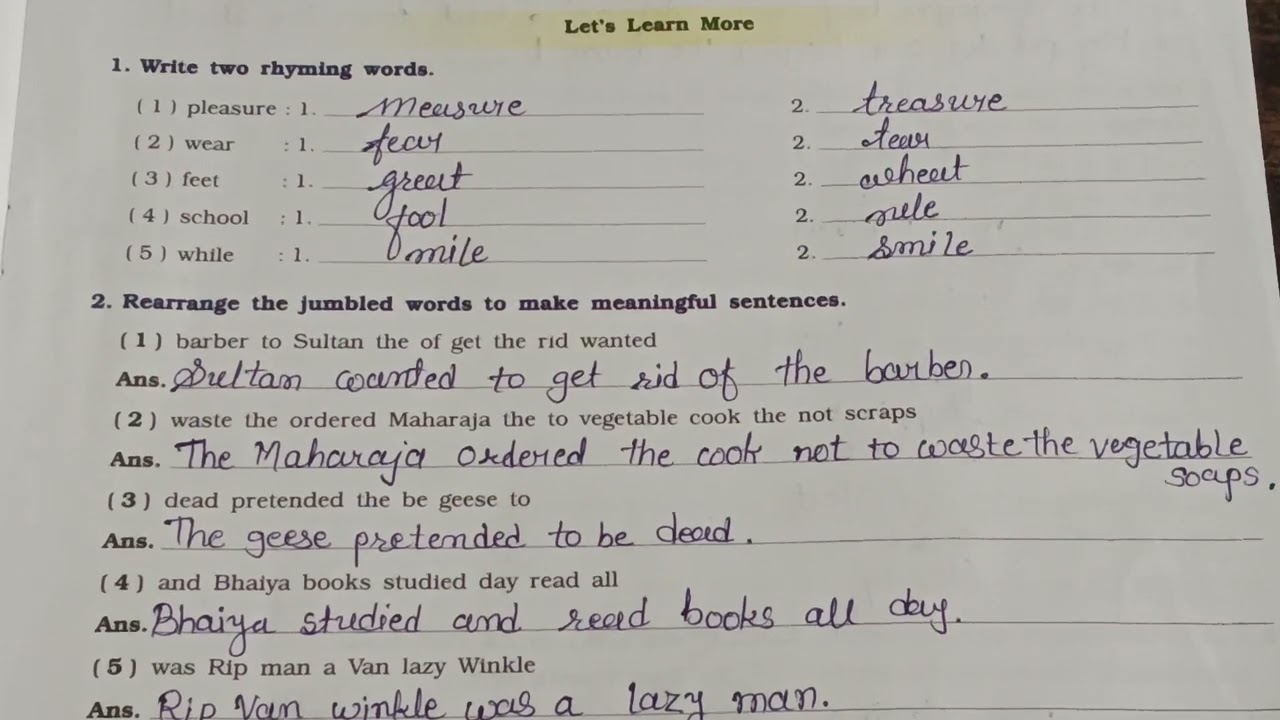 Let's Learn More
1. Write two rhyming words.
(1) pleasure : 1. measure 2. treasure
(2) wear : 1. fear 2. tear
(3) feet : 1. great 2. wheat
(4) school : 1. fool 2. rule
(5) while : 1. mile 2. smile
2. Rearrange the jumbled words to make meaningful sentences.
(1) barber to Sultan the of get the rid wanted
Ans. Sultan wanted to get rid of the barber.
(2) waste the ordered Maharaja the to vegetable cook the not scraps
Ans. The Maharaja ordered the cook not to waste the vegetable
soaps.
(3) dead pretended the be geese to
Ans. The geese pretended to be dead.
(4) and Bhaiya books studied day read all
Ans. Bhaiya studied and read books all day.
(5) was Rip man a Van lazy Winkle
Ans. Rip Van winkle was a lazy man.